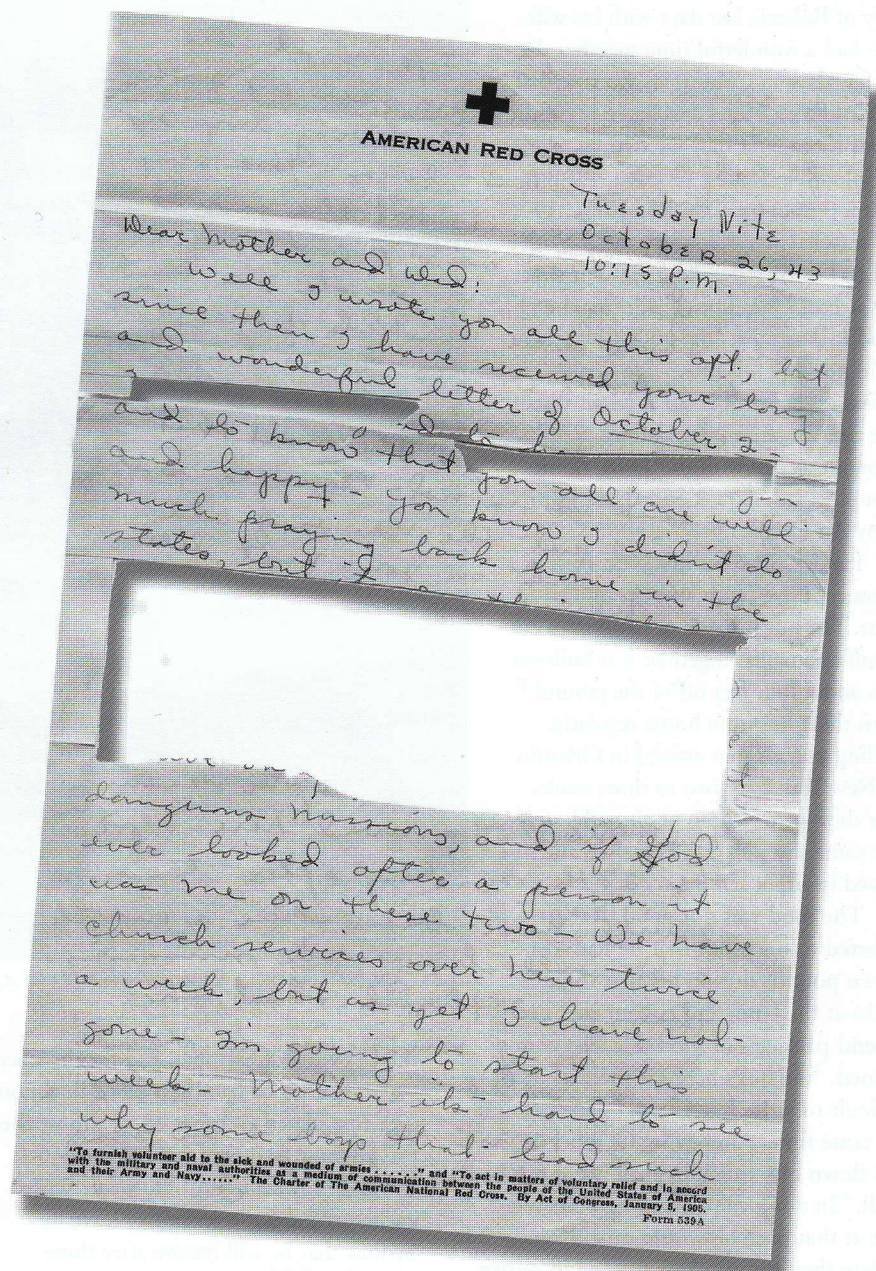 AMERICAN RED CROSS
Tuesday Nite
October 26, 43
10:15 P.M.
Dear Mother and Dad:
Well I wrote you all this aft., but
since then I have received your long
and wonderful letter of October 2
and to know that you all are well
and happy - you know I didn't do
much praying back home in the
states, but I
dangerous missions, and if God
ever looked after a person it
was me on these two - We have
church services over here twice
a week, but as yet I have not
gone - I'm going to start this
week - Mother its hard to see
why some boys that lead such
"To furnish volunteer aid to the sick and wounded of armies ......" and "To act in matters of voluntary relief and in accord
with the military and naval authorities as a medium of communication between the people of the United States of America
and their Army and Navy......" The Charter of The American National Red Cross. By Act of Congress, January 5, 1905.
Form 539A